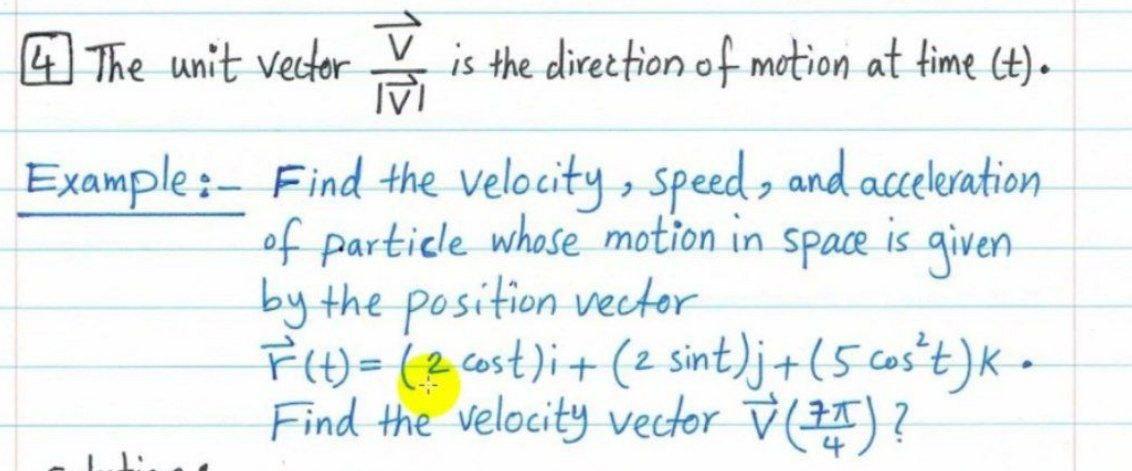 4 The unit vector V⃗/|V⃗| is the direction of motion at time (t).
Example:- Find the velocity, speed, and acceleration
of particle whose motion in space is given
by the position vector
r⃗(t) = (2 cost)i + (2 sint)j + (5 cos²t)k.
Find the velocity vector V⃗(7π/4)?